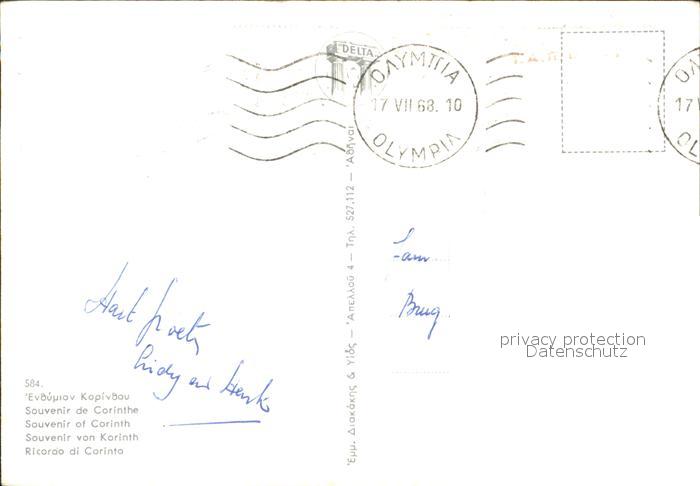 DELTA
ΟΛΥΜΠΙΑ
17 VII 68. 10
OLYMPIA
Fam
Brug
privacy protection
Datenschutz
Hart groeten
584.
Ἐνθύμιον Κορίνθου
Souvenir de Corinthe
Souvenir of Corinth
Souvenir von Korinth
Ricordo di Corinto
Ἐμμ. Διακάκης & Υἱὸς — Ἀπελλοῦ 4 — Τηλ. 527.112 — Ἀθῆναι